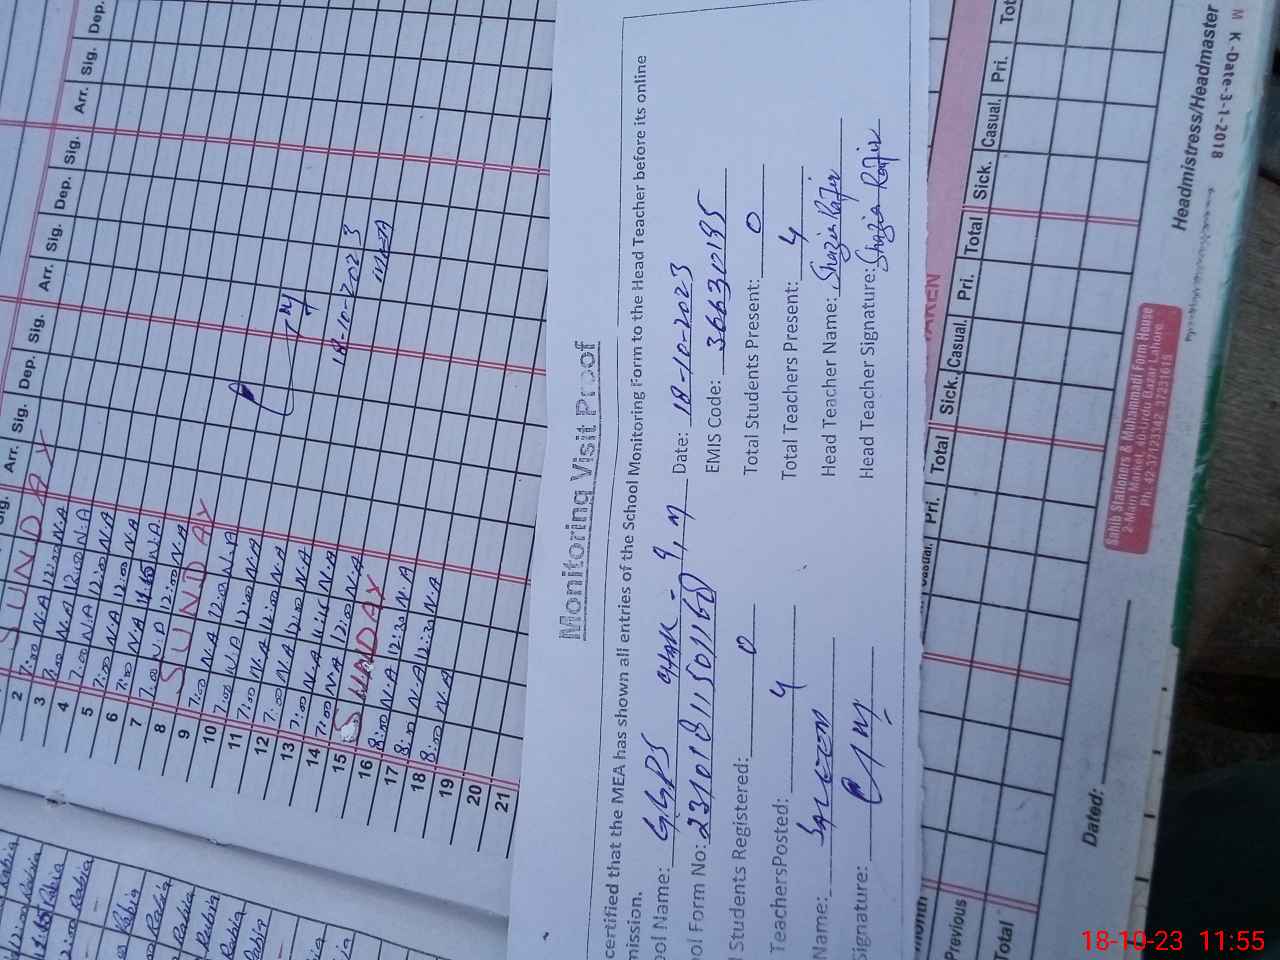 Arr. Sig. Dep. Sig. Arr. Sig. Dep. Sig. Arr. Sig. Dep.
SUNDAY
2 7:00 N.A 12:00 N.A
3 7:00 N.A 12:00 N.A
4 7:00 N.A 12:00 N.A
5 7:00 N.A 12:00 N.A
6 7:00 N.A
7 7:00 N.A 12:00 N.A
8 SUNDAY
9 7:00 N.A 12:00 N.A
10 7:00 N.A 12:00 N.A
11 7:00 N.A 12:00 N.A
12 7:00 N.A 12:00 N.A
13 7:00 N.A
14 7:00 N.A 12:00 N.A
15 SUNDAY
16 8:00 N.A 12:30 N.A
17 8:00 N.A 12:30 N.A
18 8:00 N.A
19
20
21
18-10-2023
MEA
Rabia
12:00 Rabia
11:45 Rabia
12:00 Rabia
Rabia
Rabia
Rabia
Rabia
Rabia
Rabia
Monitoring Visit Proof
certified that the MEA has shown all entries of the School Monitoring Form to the Head Teacher before its online
mission.
ool Name: GGPS CHAK-9, M Date: 18-10-2023
ol Form No: EMIS Code: 36630195
l Students Registered: 0 Total Students Present: 0
TeachersPosted: 4 Total Teachers Present: 4
Name: Saleem Head Teacher Name: Shazia Rafiq
Signature: Head Teacher Signature: Shazia Rafiq
TAKEN
month Casual. Pri. Total Sick. Casual. Pri. Total Sick. Casual. Pri. Tot
Previous
Total
Dated:
Sahib Stationers & Muhammadi Form House
2-Main Market, 40-Urdu Bazar Lahore.
Ph: 42-37123342, 37231615
Headmistress/Headmaster
M K-Date-3-1-2018
18-10-23 11:55